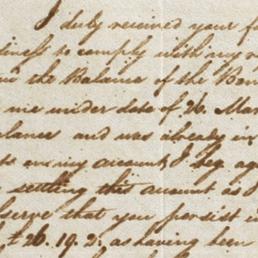 I duly received your fa
diness to comply with my r
the Balance of the Bon
me under date of 26. Mar
alance and was already in
to my account, I beg ag
settling this account as I
serve that you persist in
£26. 19. 2. as having been